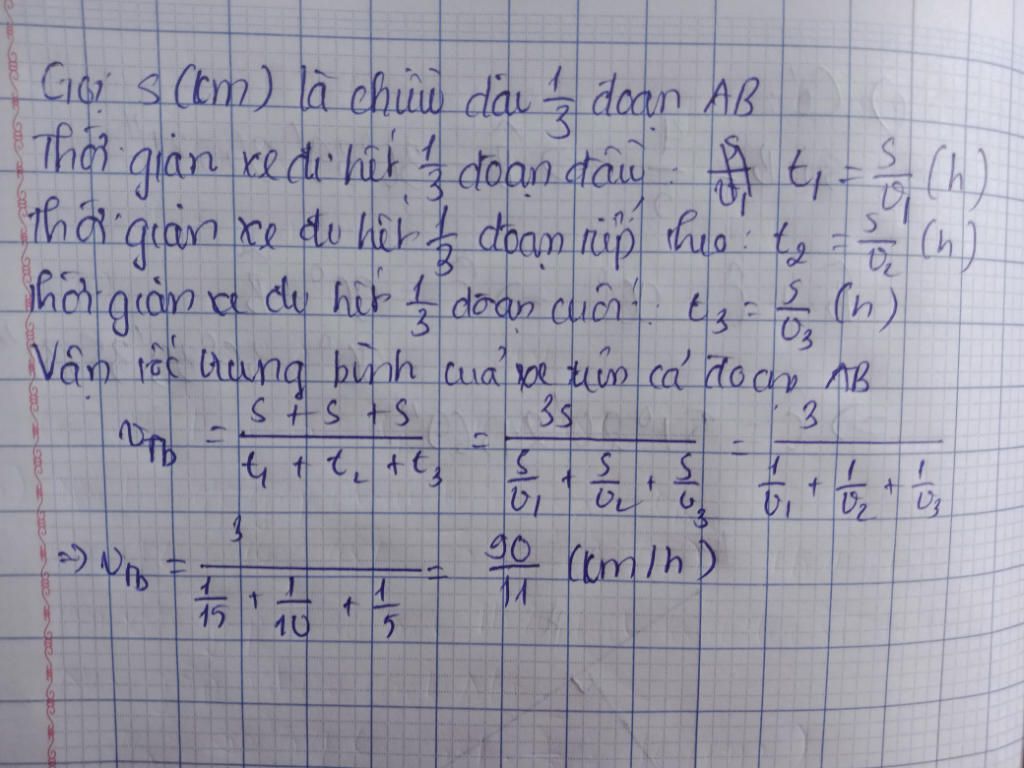 Gọi s (km) là chiều dài 1/3 đoạn AB
Thời gian xe đi hết 1/3 đoạn đầu: t₁ = s/v₁ (h)
Thời gian xe đi hết 1/3 đoạn tiếp theo: t₂ = s/v₂ (h)
Thời gian xe đi hết 1/3 đoạn cuối: t₃ = s/v₃ (h)
Vận tốc trung bình của xe trên cả đoạn AB
v_Tb = (s + s + s)/(t₁ + t₂ + t₃) = 3s/(s/v₁ + s/v₂ + s/v₃) = 3/(1/v₁ + 1/v₂ + 1/v₃)
=> v_Tb = 3/(1/15 + 1/10 + 1/5) = 90/11 (km/h)